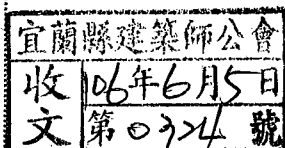 宜蘭縣建築師公會
收文 106年6月5日
第0324號